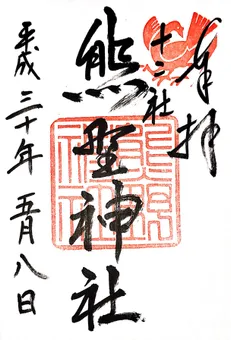 奉拝
十二社
熊野神社
平成三十年五月八日